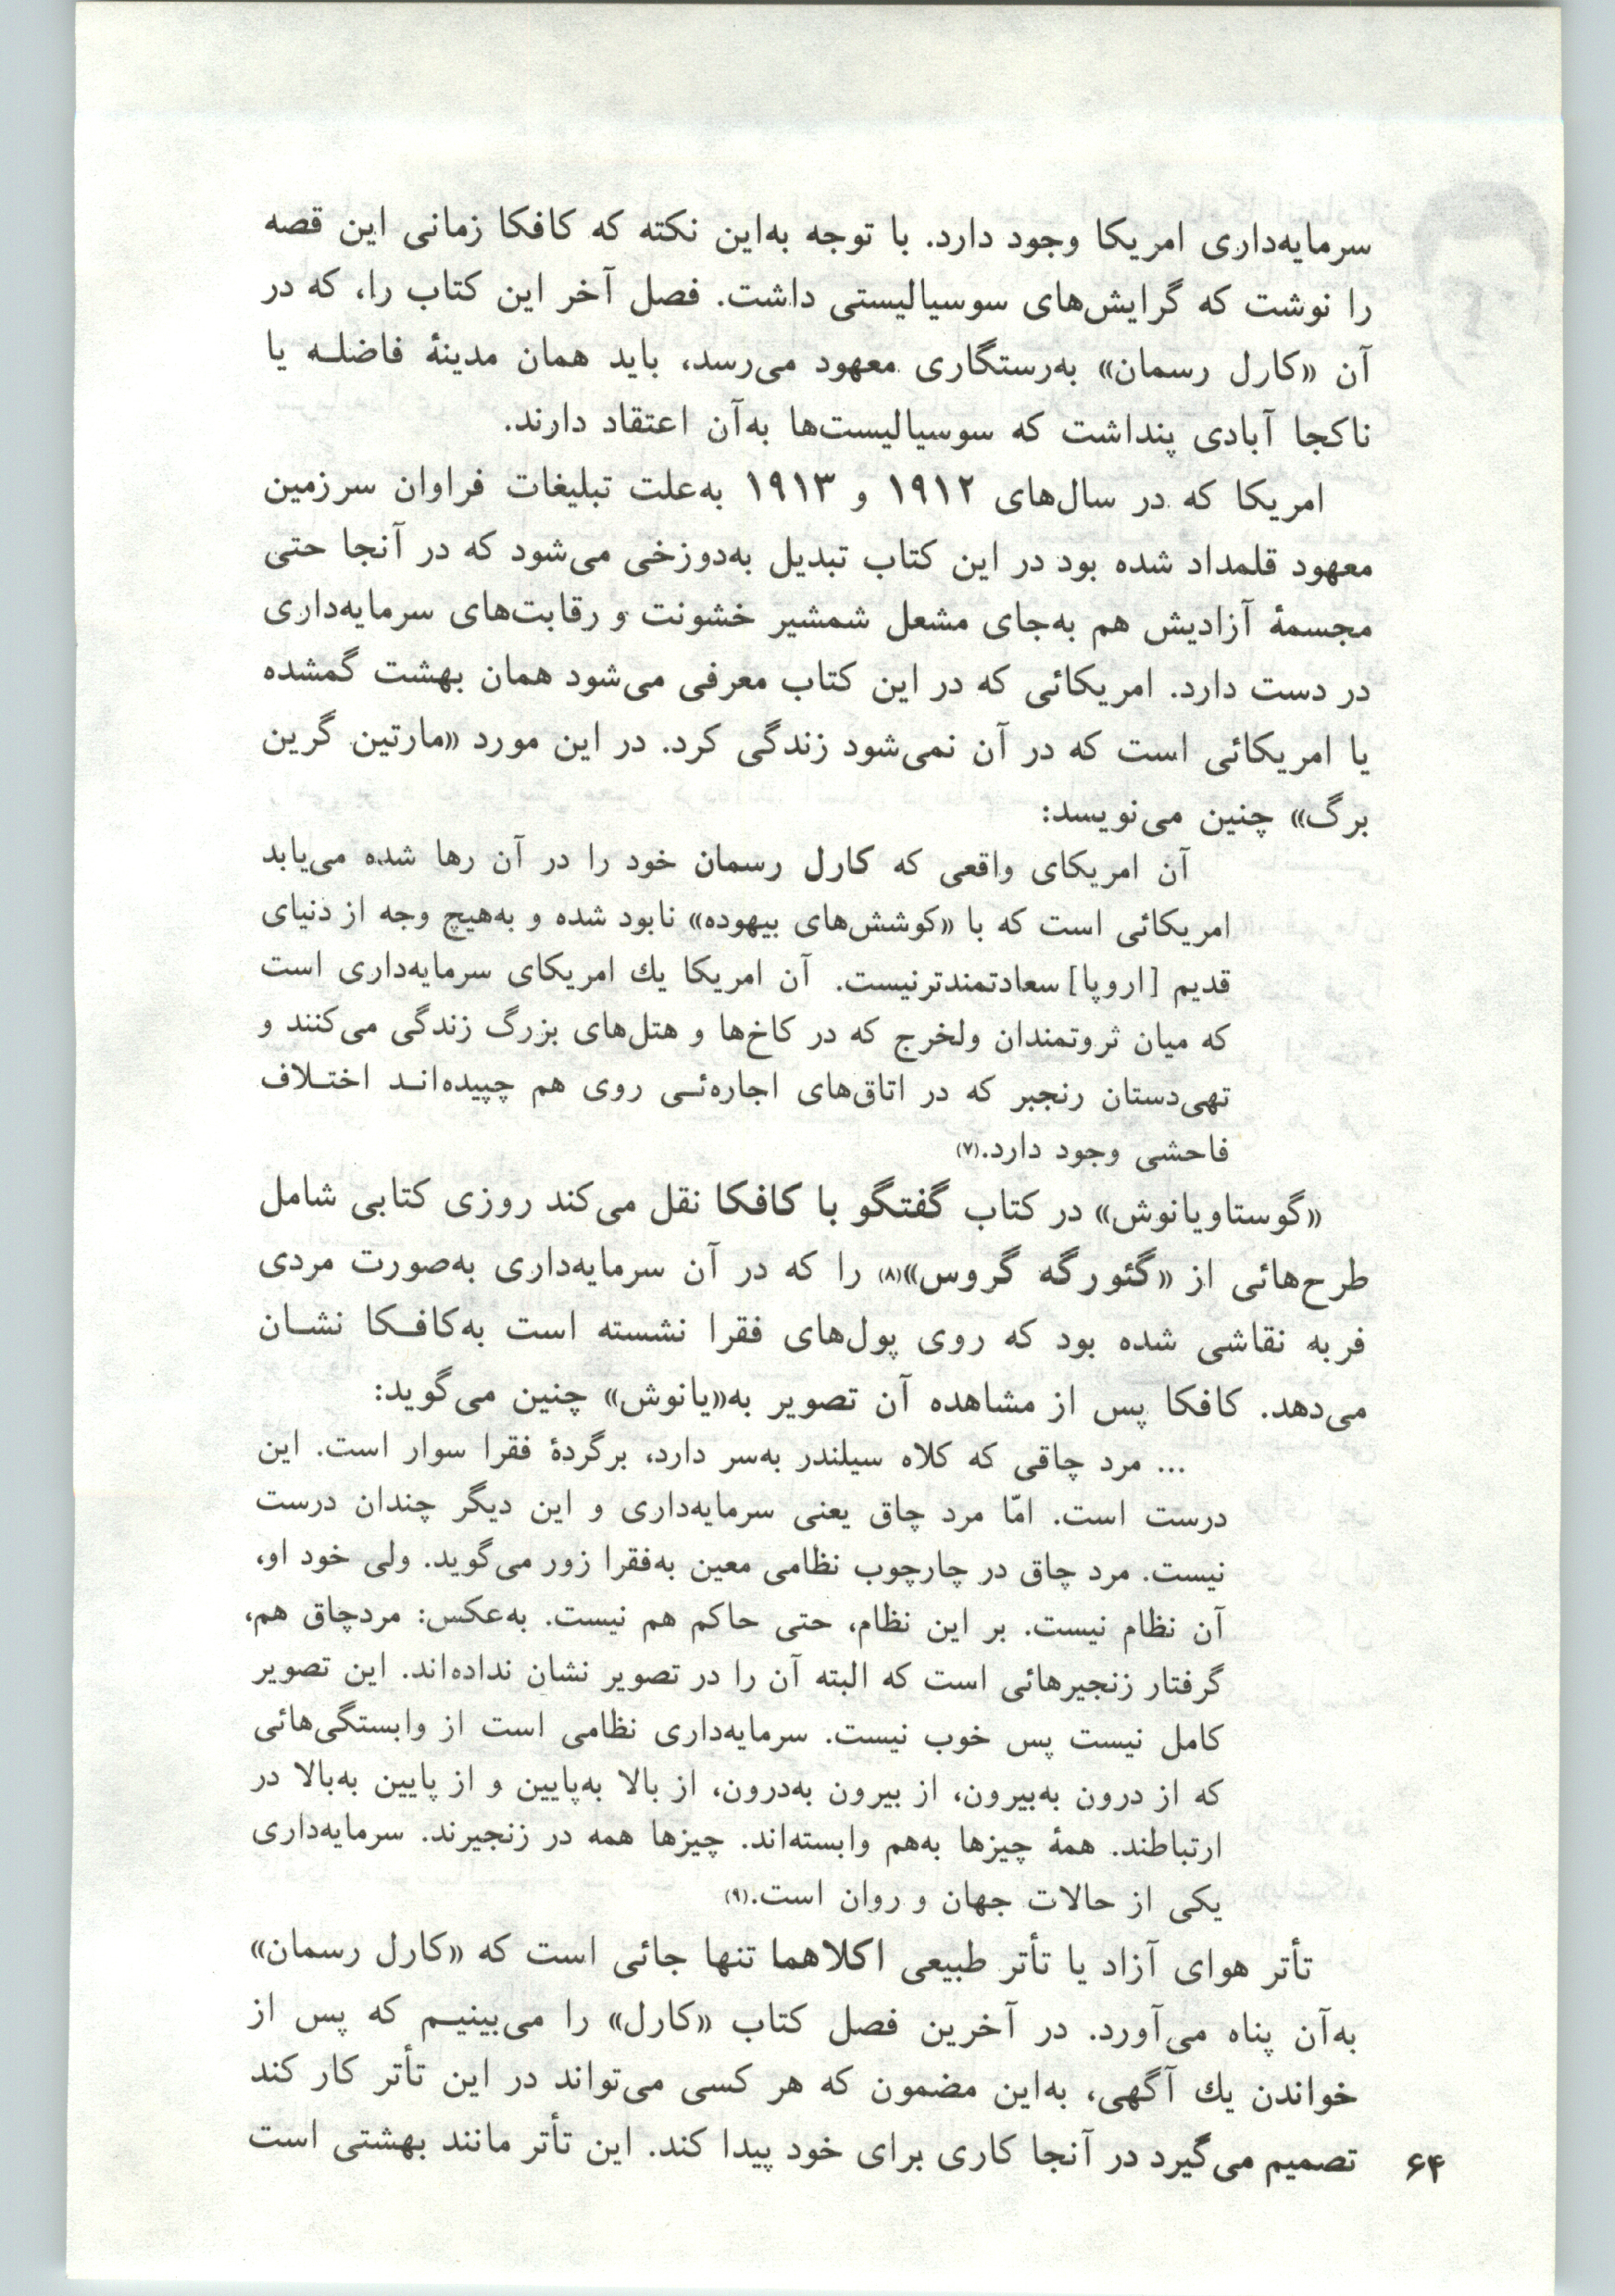 سرمایه‌داری امریکا وجود دارد. با توجه به‌این نکته که کافکا زمانی این قصه
را نوشت که گرایش‌های سوسیالیستی داشت. فصل آخر این کتاب را، که در
آن «کارل رسمان» به‌رستگاری معهود می‌رسد، باید همان مدینهٔ فاضلـه یا
ناکجا آبادی پنداشت که سوسیالیست‌ها به‌آن اعتقاد دارند.
امریکا که در سال‌های ۱۹۱۲ و ۱۹۱۳ به‌علت تبلیغات فراوان سرزمین
معهود قلمداد شده بود در این کتاب تبدیل به‌دوزخی می‌شود که در آنجا حتی
مجسمهٔ آزادیش هم به‌جای مشعل شمشیر خشونت و رقابت‌های سرمایه‌داری
در دست دارد. امریکائی که در این کتاب معرفی می‌شود همان بهشت گمشده
یا امریکائی است که در آن نمی‌شود زندگی کرد. در این مورد «مارتین گرین
برگ» چنین می‌نویسد:
آن امریکای واقعی که کارل رسمان خود را در آن رها شده می‌یابد
امریکائی است که با «کوشش‌های بیهوده» نابود شده و به‌هیچ وجه از دنیای
قدیم [اروپا] سعادتمندترنیست. آن امریکا یك امریکای سرمایه‌داری است
که میان ثروتمندان ولخرج که در کاخ‌ها و هتل‌های بزرگ زندگی می‌کنند و
تهی‌دستان رنجبر که در اتاق‌های اجاره‌ئـی روی هم چپیده‌انـد اختـلاف
فاحشی وجود دارد.(۷)
«گوستاویانوش» در کتاب گفتگو با کافکا نقل می‌کند روزی کتابی شامل
طرح‌هائی از «گئورگه گروس»(۸) را که در آن سرمایه‌داری به‌صورت مردی
فربه نقاشی شده بود که روی پول‌های فقرا نشسته است به‌کافـکا نشـان
می‌دهد. کافکا پس از مشاهده آن تصویر به‌«یانوش» چنین می‌گوید:
... مرد چاقی که کلاه سیلندر به‌سر دارد، برگردهٔ فقرا سوار است. این
درست است. امّا مرد چاق یعنی سرمایه‌داری و این دیگر چندان درست
نیست. مرد چاق در چارچوب نظامی معین به‌فقرا زور می‌گوید. ولی خود او،
آن نظام نیست. بر این نظام، حتی حاکم هم نیست. به‌عکس: مردچاق هم،
گرفتار زنجیرهائی است که البته آن را در تصویر نشان نداده‌اند. این تصویر
کامل نیست پس خوب نیست. سرمایه‌داری نظامی است از وابستگی‌هائی
که از درون به‌بیرون، از بیرون به‌درون، از بالا به‌پایین و از پایین به‌بالا در
ارتباطند. همهٔ چیزها به‌هم وابسته‌اند. چیزها همه در زنجیرند. سرمایه‌داری
یکی از حالات جهان و روان است.(۹)
تأتر هوای آزاد یا تأتر طبیعی اکلاهما تنها جائی است که «کارل رسمان»
به‌آن پناه می‌آورد. در آخرین فصل کتاب «کارل» را می‌بینیـم که پس از
خواندن یك آگهی، به‌این مضمون که هر کسی می‌تواند در این تأتر کار کند
تصمیم می‌گیرد در آنجا کاری برای خود پیدا کند. این تأتر مانند بهشتی است
۶۴